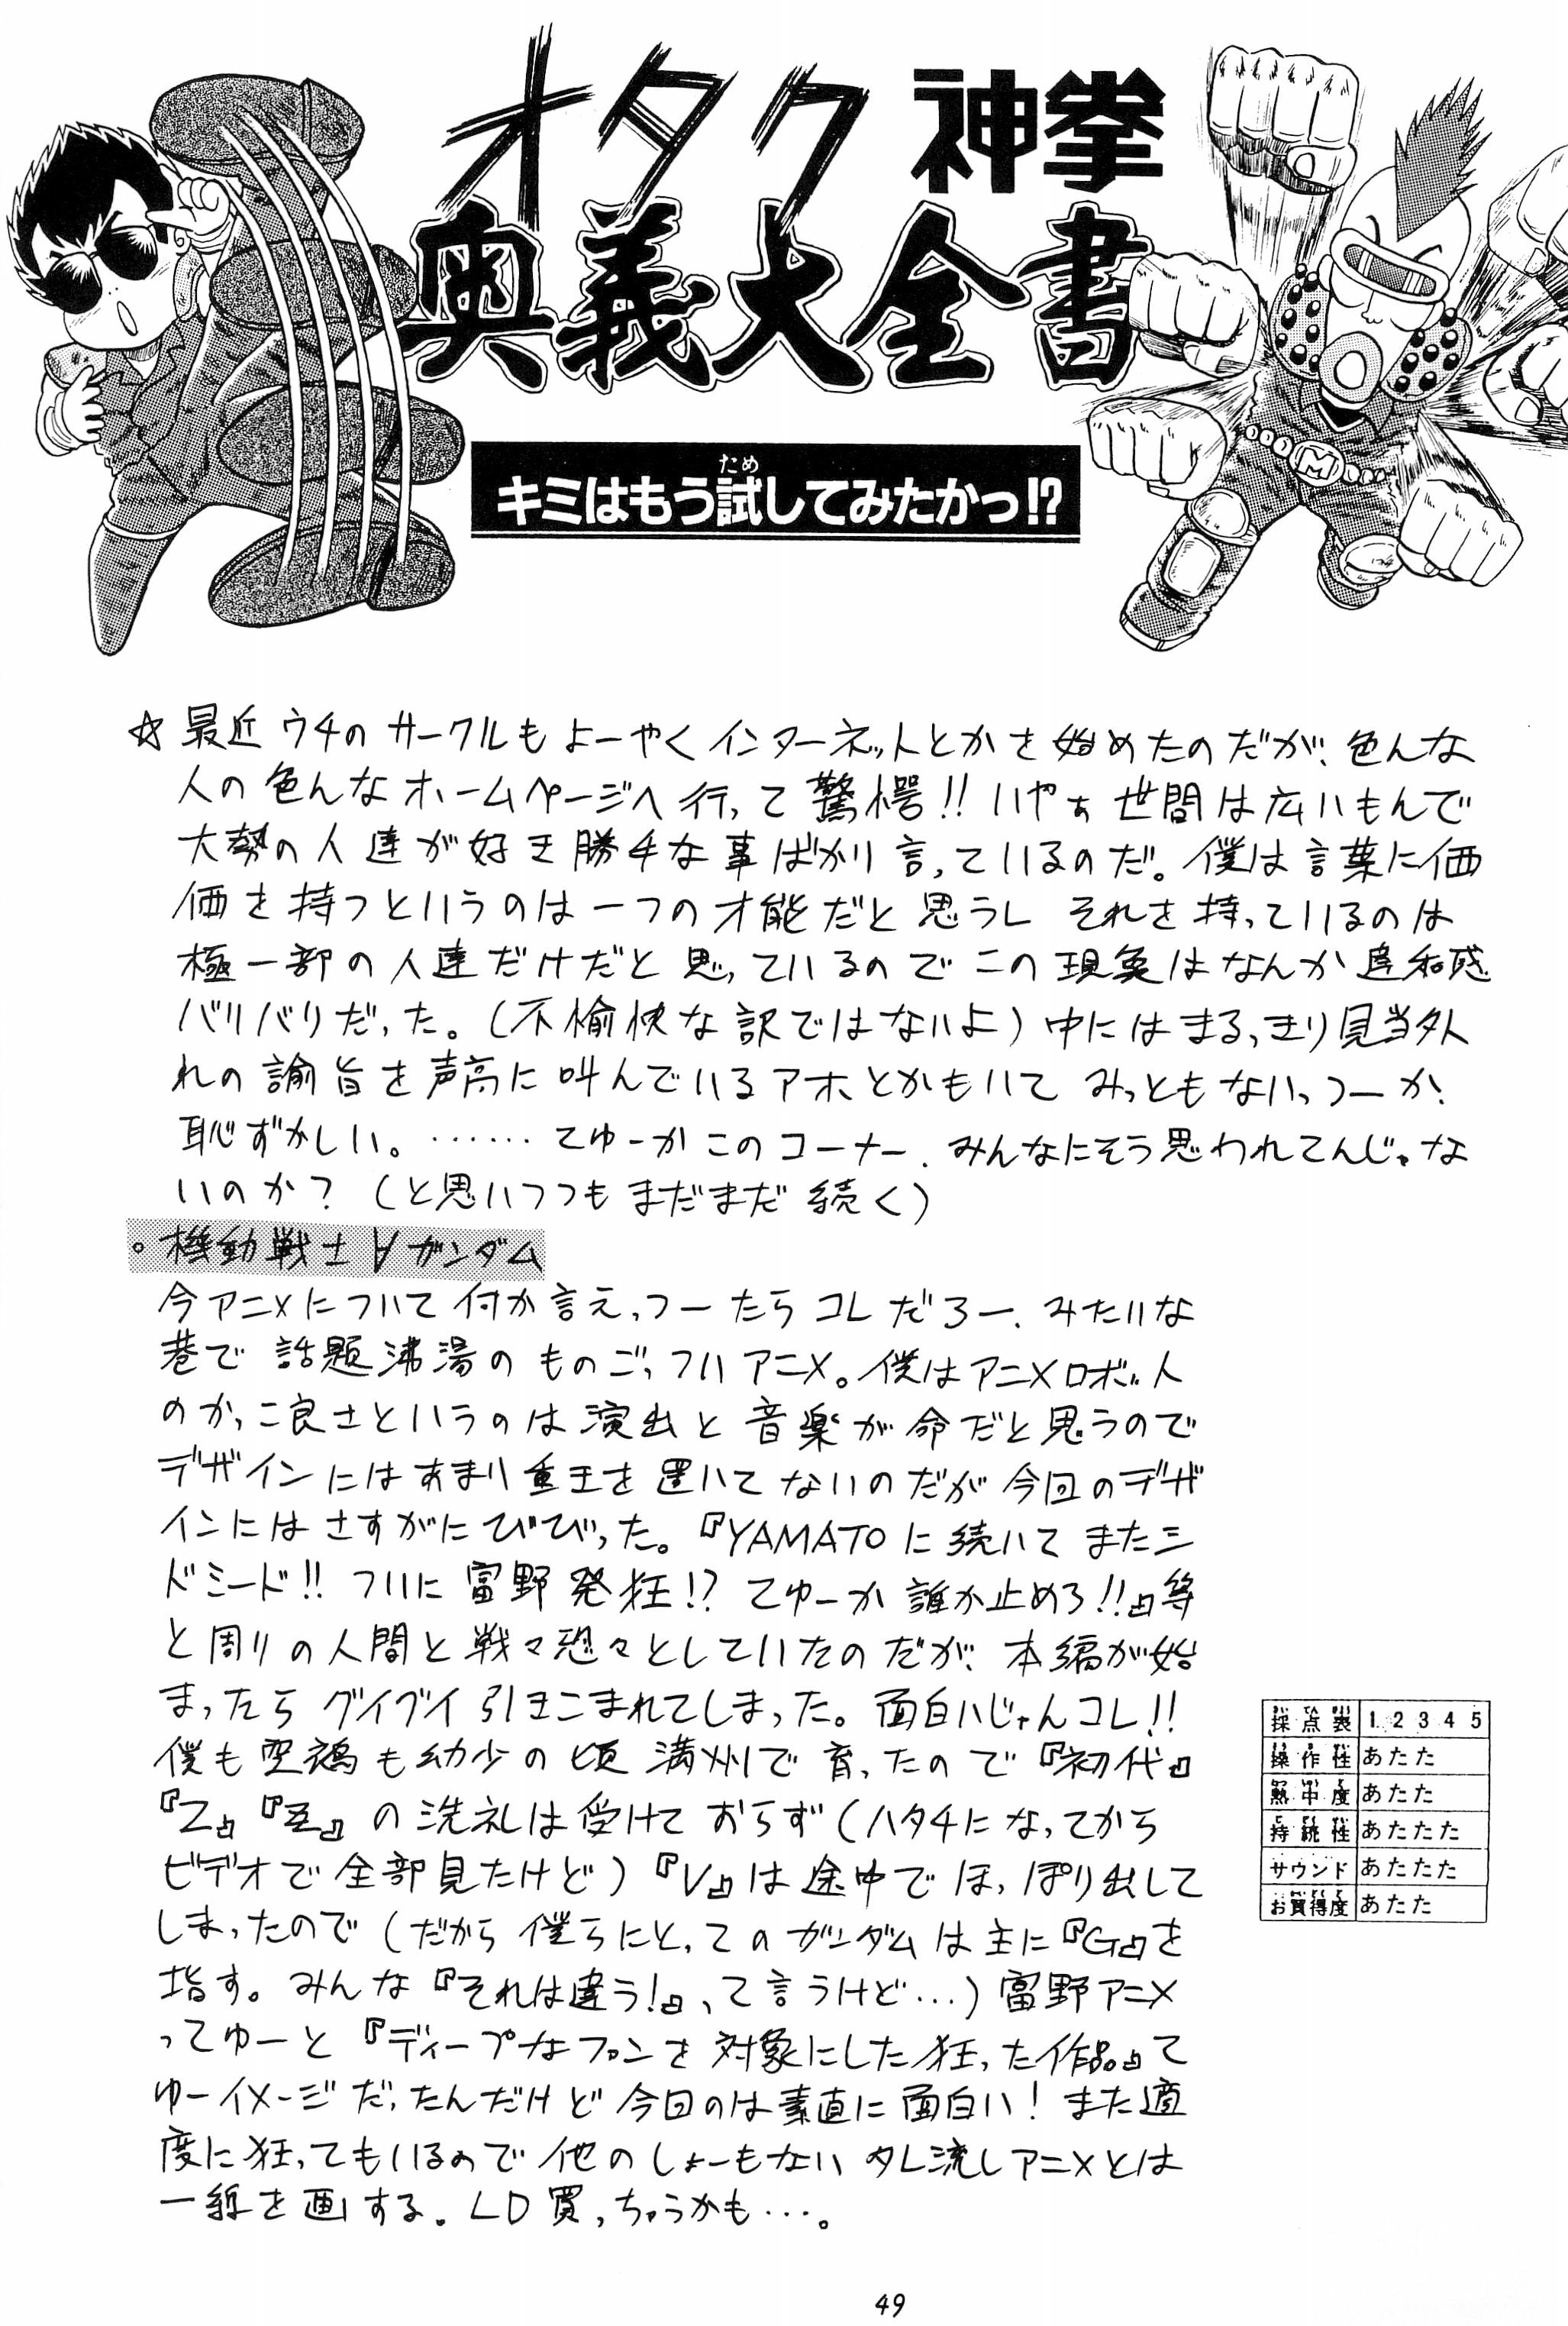 オタク神拳
奥義大全書
キミはもう試してみたかっ!?
ため
☆最近ウチのサークルもよーやくインターネットとかを始めたのだが、色んな
人の色んなホームページへ行って驚愕!!いやぁ世間は広いもんで
大勢の人達が好き勝手な事ばかり言っているのだ。僕は言葉に価
価を持つというのは一つの才能だと思うし それを持っているのは
極一部の人達だけだと思っているのでこの現象はなんか違和感
バリバリだった。(不愉快な訳ではないよ)中にはまるっきり見当外
れの諭旨を声高に叫んでいるアホとかもいてみっともないっつーか、
恥ずかしい。……てゆーかこのコーナー、みんなにそう思われてんじゃな
いのか?(と思いつつもまだまだ続く)
。機動戦士∀ガンダム
今アニメについて何か言えっつーたらコレだろー、みたいな
巷で話題沸湯のものごっついアニメ。僕はアニメロボット
のかっこ良さというのは演出と音楽が命だと思うので
デザインにはあまり重王を置いてないのだが今回のデザ
インにはさすがにびびった。『YAMATOに続いてまたシ
ドミード!!ついに富野発狂!?てゆーか誰か止めろ!!』等
と周りの人間と戦々恐々としていたのだが、本編が始
まったらグイグイ引きこまれてしまった。面白いじゃんコレ!!
僕も空鵺も幼少の頃満州で育ったので『初代』
『Z』『ZZ』の洗礼は受けておらず(ハタチになってから
ビデオで全部見たけど)『V』は途中でほっぽり出して
しまったので(だから僕らにとってのガンダムは主に『G』を
指す。みんな『それは違う!』って言うけど…)富野アニメ
ってゆーと『ディープなファンを対象にした狂った作品』て
ゆーイメージだったんだけど今回のは素直に面白い!また適
度に狂ってもいるので他のしょーもないタレ流しアニメとは
一線を画する。LD買っちゃうかも…。
採点表 1 2 3 4 5
操作性 あたた
熱中度 あたた
持続性 あたたた
サウンド あたたた
お買得度 あたた
49